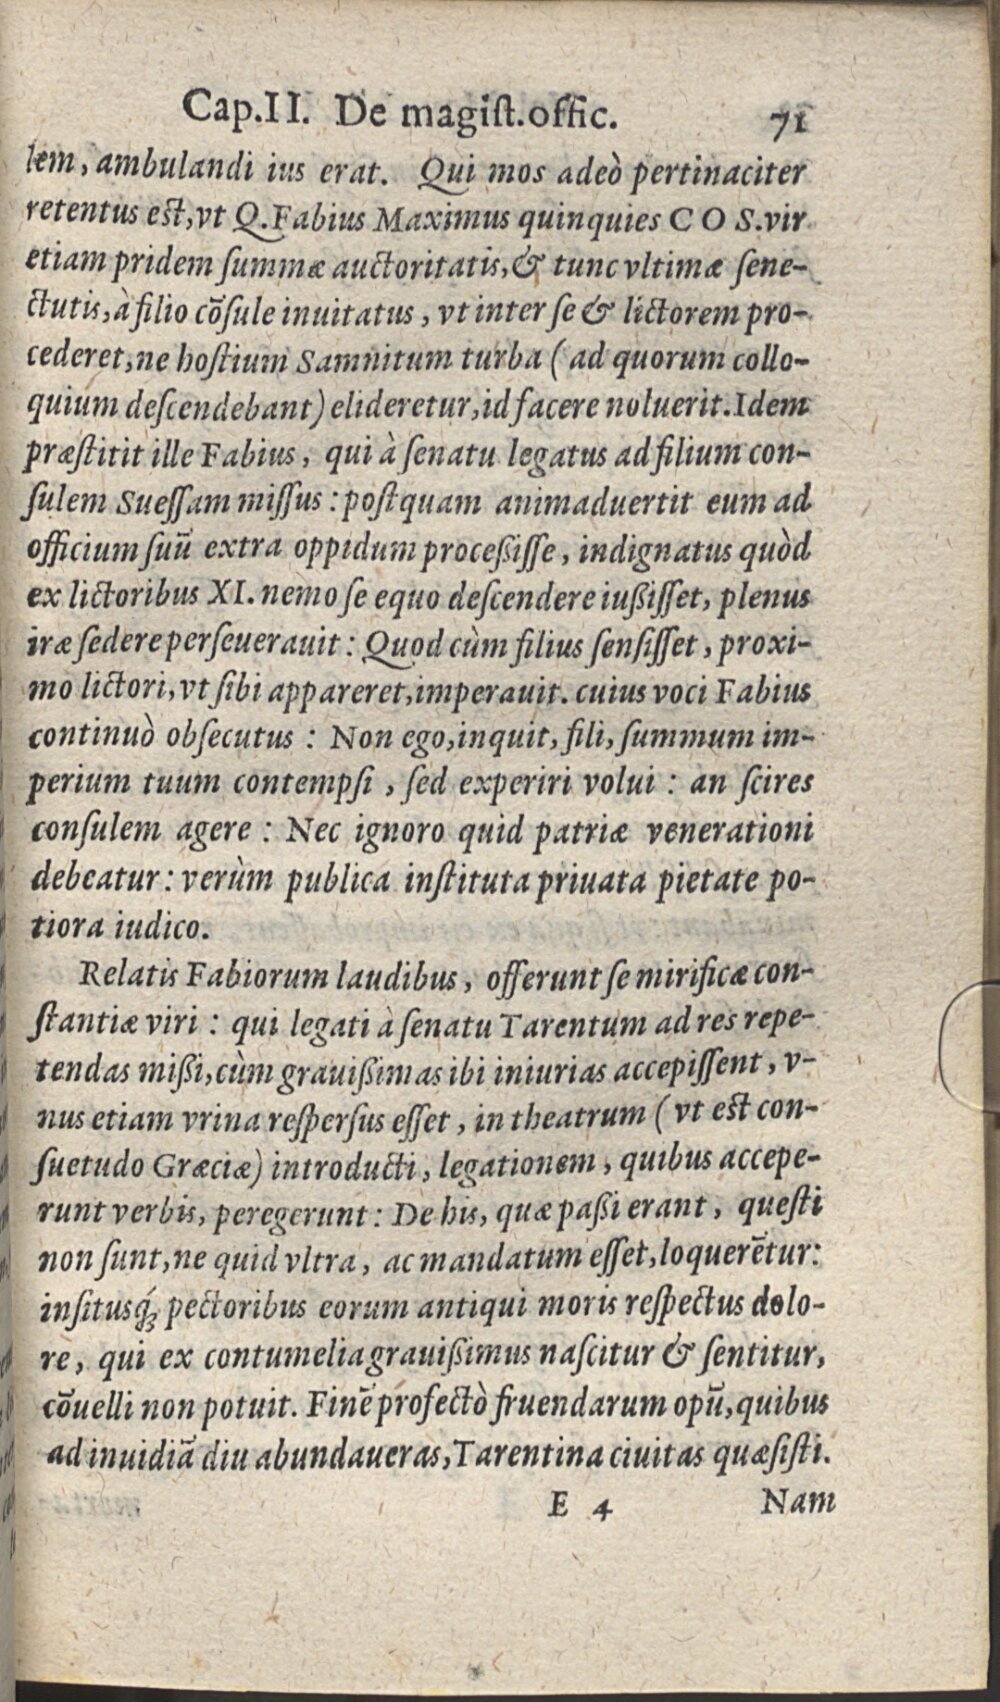 Cap.II. De magiſt.offic. 71
lem, ambulandi ius erat. Qui mos adeò pertinaciter
retentus eſt, vt Q. Fabius Maximus quinquies C O S. vir
etiam pridem ſummæ auctoritatis, & tunc vltimæ ſene-
ctutis, à filio cõſule inuitatus, vt inter ſe & lictorem pro-
cederet, ne hoſtium Samnitum turba (ad quorum collo-
quium deſcendebant) elideretur, id facere noluerit. Idem
præſtitit ille Fabius, qui à ſenatu legatus ad filium con-
ſulem Sueſſam miſſus: poſtquam animaduertit eum ad
officium ſuũ extra oppidum proceßiſſe, indignatus quòd
ex lictoribus XI. nemo ſe equo deſcendere iußiſſet, plenus
iræ ſedere perſeuerauit: Quod cùm filius ſenſiſſet, proxi-
mo lictori, vt ſibi appareret, imperauit. cuius voci Fabius
continuò obſecutus: Non ego, inquit, fili, ſummum im-
perium tuum contempſi, ſed experiri volui: an ſcires
conſulem agere: Nec ignoro quid patriæ venerationi
debeatur: verùm publica inſtituta priuata pietate po-
tiora iudico.
Relatis Fabiorum laudibus, offerunt ſe mirificæ con-
ſtantiæ viri: qui legati à ſenatu Tarentum ad res repe-
tendas mißi, cùm grauißimas ibi iniurias accepiſſent, v-
nus etiam vrina reſperſus eſſet, in theatrum (vt eſt con-
ſuetudo Græciæ) introducti, legationem, quibus accepe-
runt verbis, peregerunt: De his, quæ paßi erant, queſti
non ſunt, ne quid vltra, ac mandatum eſſet, loquerẽtur:
inſitusq́; pectoribus eorum antiqui moris reſpectus dolo-
re, qui ex contumelia grauißimus naſcitur & ſentitur,
cõuelli non potuit. Finẽ profectò fruendarum opũ, quibus
ad inuidiã diu abundaueras, Tarentina ciuitas quæſiſti.
E 4 Nam